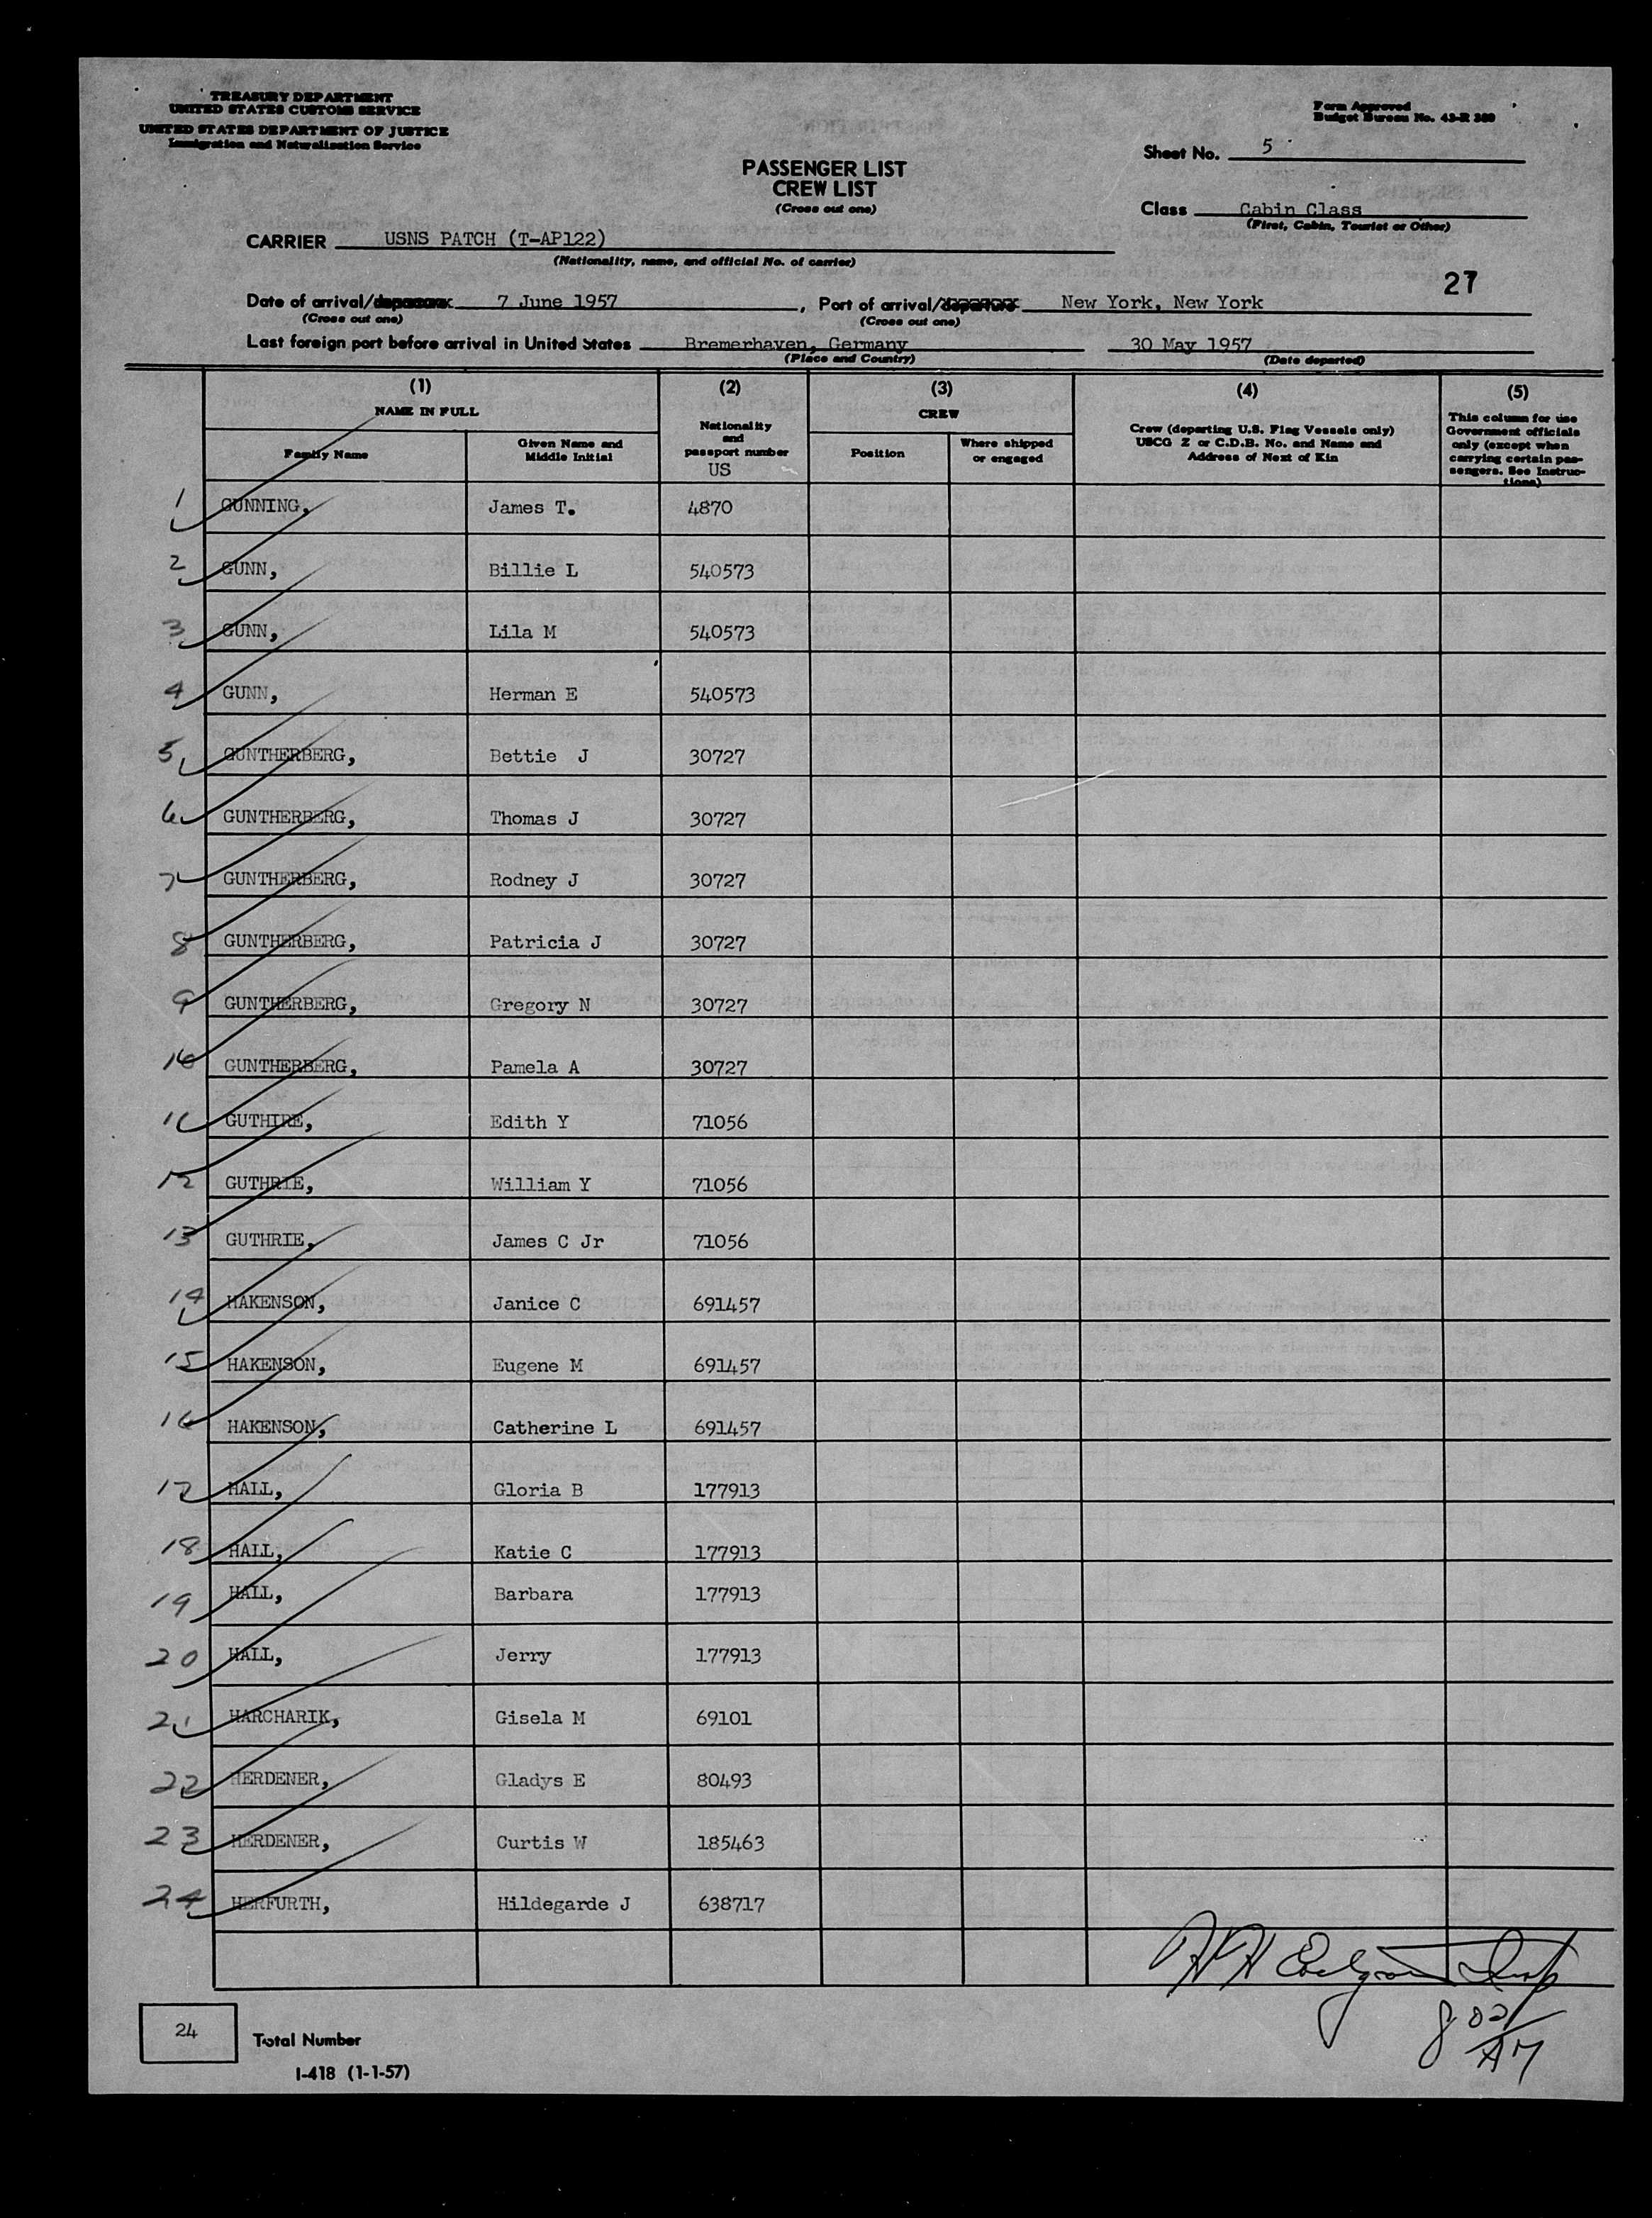 TREASURY DEPARTMENT
UNITED STATES CUSTOMS SERVICE
UNITED STATES DEPARTMENT OF JUSTICE
Immigration and Naturalization Service
Form Approved
Budget Bureau No. 43-R 380
Sheet No. 5
PASSENGER LIST
CREW LIST
(Cross out one)
Class Cabin Class
(First, Cabin, Tourist or Other)
CARRIER USNS PATCH (T-AP122)
(Nationality, name, and official No. of carrier)
27
Date of arrival/departure 7 June 1957, Port of arrival/departure New York, New York
(Cross out one) (Cross out one)
Last foreign port before arrival in United States Bremerhaven, Germany 30 May 1957
(Place and Country) (Date departed)
(1) (2) (3) (4) (5)
NAME IN FULL
Family Name
Given Name and Middle Initial
Nationality and passport number
US
CREW
Position
Where shipped or engaged
Crew (departing U.S. Flag Vessels only)
USCG Z or C.D.B. No. and Name and
Address of Next of Kin
This column for use
Government officials
only (except when
carrying certain pas-
sengers. See Instruc-
tions)
1 GUNNING, James T. 4870
2 GUNN, Billie L 540573
3 GUNN, Lila M 540573
4 GUNN, Herman E 540573
5 GUNTHERBERG, Bettie J 30727
6 GUNTHERBERG, Thomas J 30727
7 GUNTHERBERG, Rodney J 30727
8 GUNTHERBERG, Patricia J 30727
9 GUNTHERBERG, Gregory N 30727
10 GUNTHERBERG, Pamela A 30727
11 GUTHIRE, Edith Y 71056
12 GUTHRIE, William Y 71056
13 GUTHRIE, James C Jr 71056
14 HAKENSON, Janice C 691457
15 HAKENSON, Eugene M 691457
16 HAKENSON, Catherine L 691457
17 HALL, Gloria B 177913
18 HALL, Katie C 177913
19 HALL, Barbara 177913
20 HALL, Jerry 177913
21 HARCHARIK, Gisela M 69101
22 HERDENER, Gladys E 80493
23 HERDENER, Curtis W 185463
24 HERFURTH, Hildegarde J 638717
24 Total Number
I-418 (1-1-57)